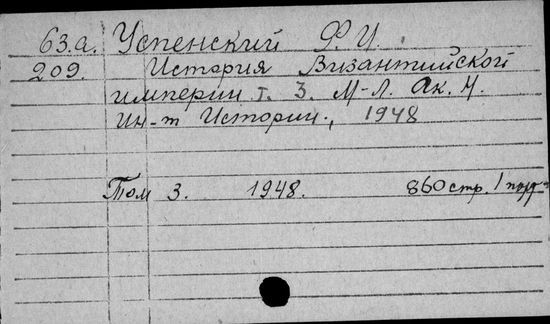 63.а. Успенский Ф. И.
209. История Византийской
империи т. 3. М-Л. Ак. Н.
Ин-т Истории., 1948
Том 3. 1948. 860 стр. 1